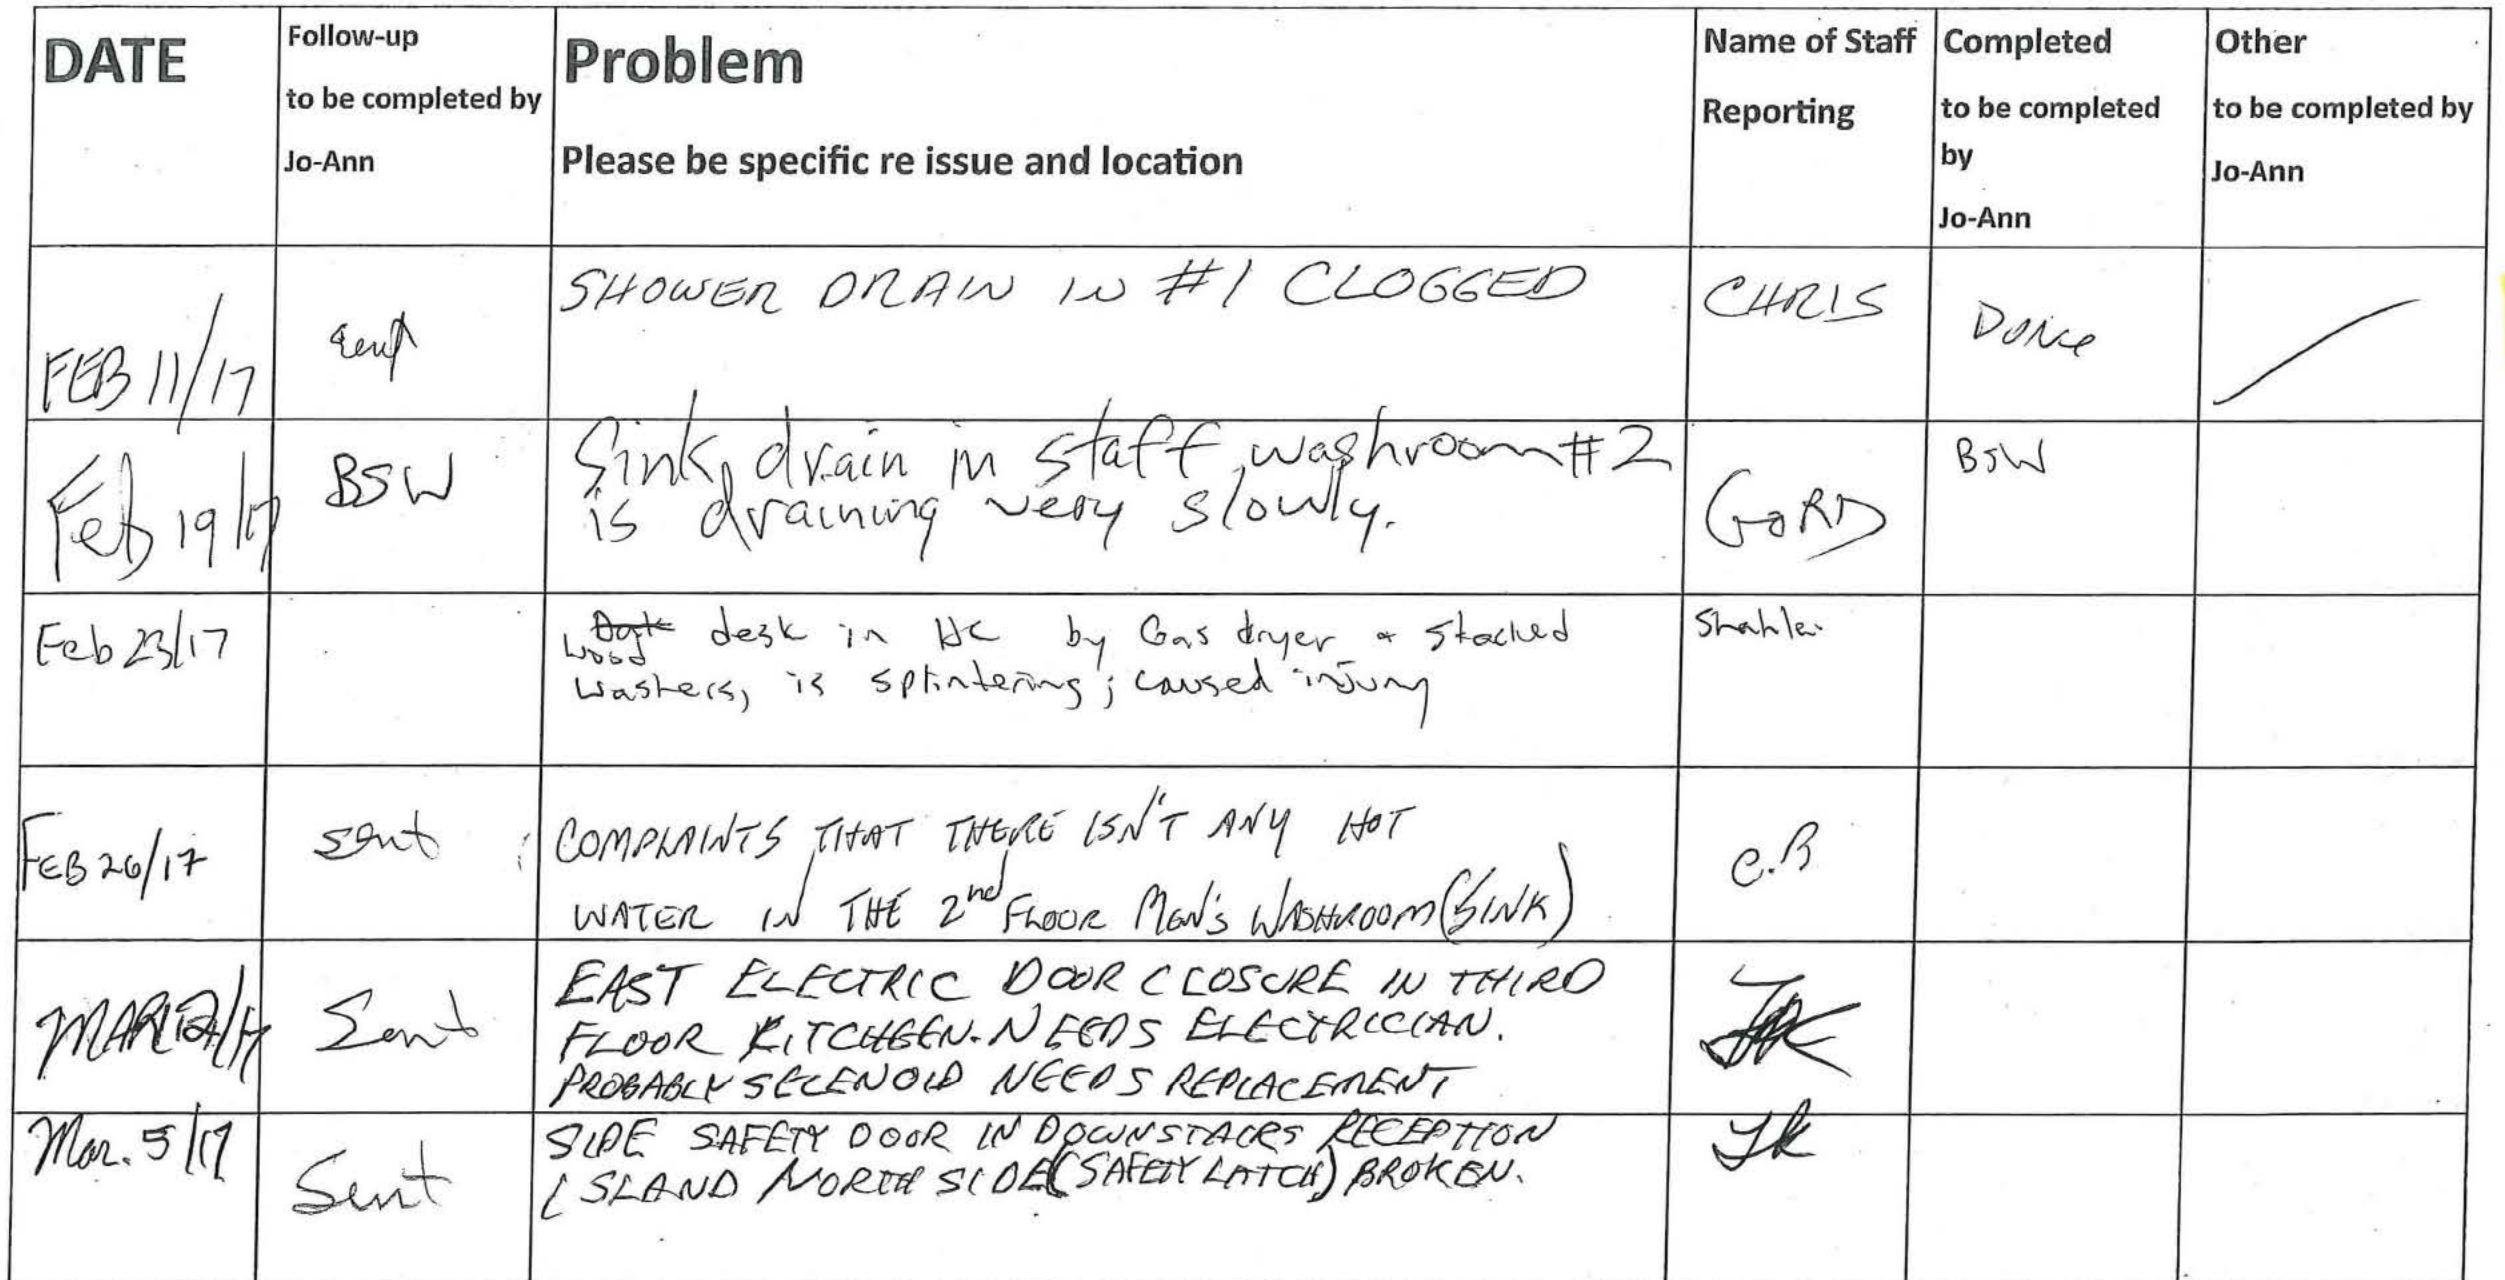 DATE
Follow-up
to be completed by
Jo-Ann
Problem
Please be specific re issue and location
Name of Staff
Reporting
Completed
to be completed
by
Jo-Ann
Other
to be completed by
Jo-Ann
FEB 11/17
Sent
SHOWER DRAIN IN #1 CLOGGED
CHRIS
DONE
Feb 19/17
BSW
Sink drain in staff washroom #2
is draining very slowly.
GORD
BSW
Feb 23/17
Wood desk in by Gas dryer + stacked
washers, is splintering; caused injury
FEB 26/17
sent
COMPLAINTS THAT THERE ISN'T ANY HOT
WATER IN THE 2nd FLOOR MEN'S WASHROOM (SINK)
C.B
Sent
EAST ELECTRIC DOOR CLOSURE IN THIRD
FLOOR KITCHEEN. NEEDS ELECTRICIAN.
PROBABLY SELENOID NEEDS REPLACEMENT
Mar. 5/17
Sent
SIDE SAFETY DOOR IN DOWNSTAIRS RECEPTION
ISLAND NORTH SIDE (SAFETY LATCH) BROKEN.